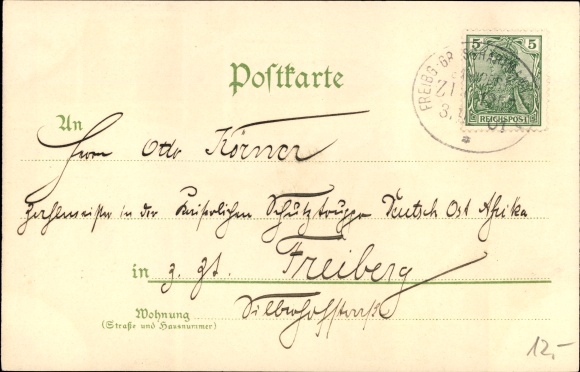 5 5
REICHSPOST
FREIBG.-GR.
ZUG
3.
01
Postkarte
An
Herrn Otto Körner
Zahlmeister in der Kaiserlichen Schutztruppe Deutsch Ost Afrika
in z. Zt. Freiberg
Wohnung
(Straße und Hausnummer)
Silberhofstraße
12,-